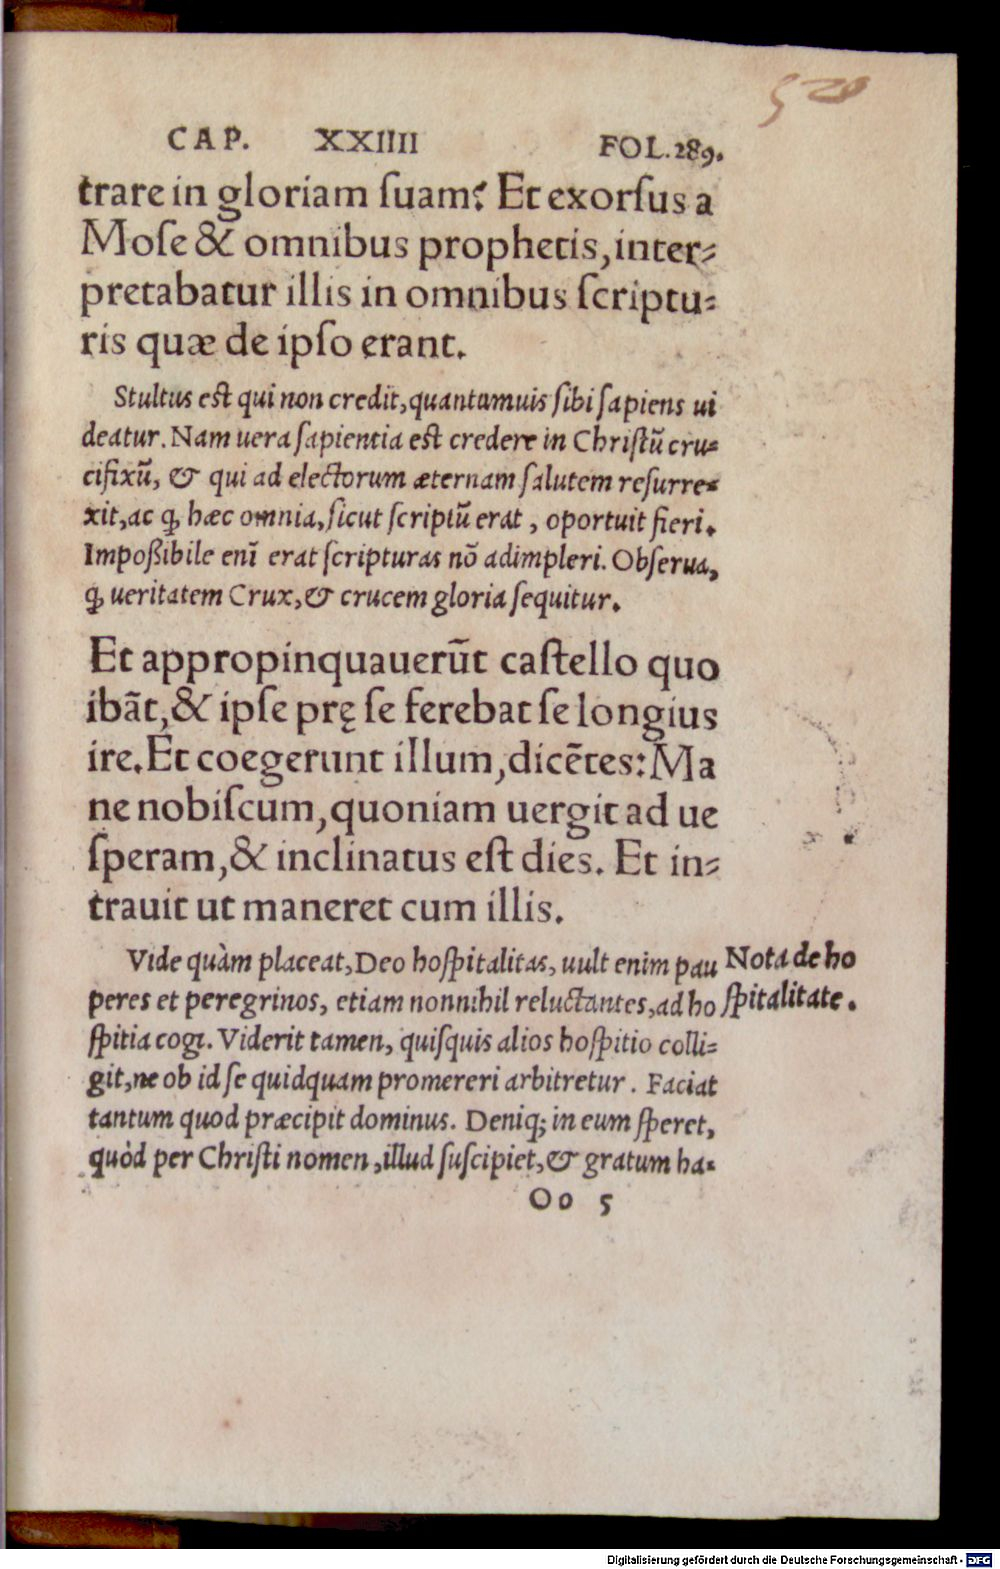 528
CAP. XXIIII FOL. 289.
trare in gloriam ſuam? Et exorſus a
Moſe & omnibus prophetis, inter-
pretabatur illis in omnibus ſcriptu-
ris quæ de ipſo erant.
Stultus eſt qui non credit, quantumuis ſibi ſapiens ui
deatur. Nam uera ſapientia eſt credere in Chriſtū cru-
cifixū, & qui ad electorum æternam ſalutem reſurre-
xit, ac ꝙ hæc omnia, ſicut ſcriptū erat, oportuit fieri.
Impoßibile enī erat ſcripturas nō adimpleri. Obſerua,
ꝙ ueritatem Crux, & crucem gloria ſequitur.
Et appropinquauerūt caſtello quo
ibāt, & ipſe prę ſe ferebat ſe longius
ire. Et coegerunt illum, dicētes: Ma
ne nobiſcum, quoniam uergit ad ue
ſperam, & inclinatus eſt dies. Et in-
trauit ut maneret cum illis.
Vide quàm placeat, Deo hoſpitalitas, uult enim pau
peres et peregrinos, etiam nonnihil reluctantes, ad ho
ſpitia cogi. Viderit tamen, quiſquis alios hoſpitio colli-
git, ne ob id ſe quidquam promereri arbitretur. Faciat
tantum quod præcipit dominus. Deniq; in eum ſperet,
quòd per Chriſti nomen, illud ſuſcipiet, & gratum ha-
Nota de ho
ſpitalitate.
Oo 5
Digitalisierung gefördert durch die Deutsche Forschungsgemeinschaft - DFG